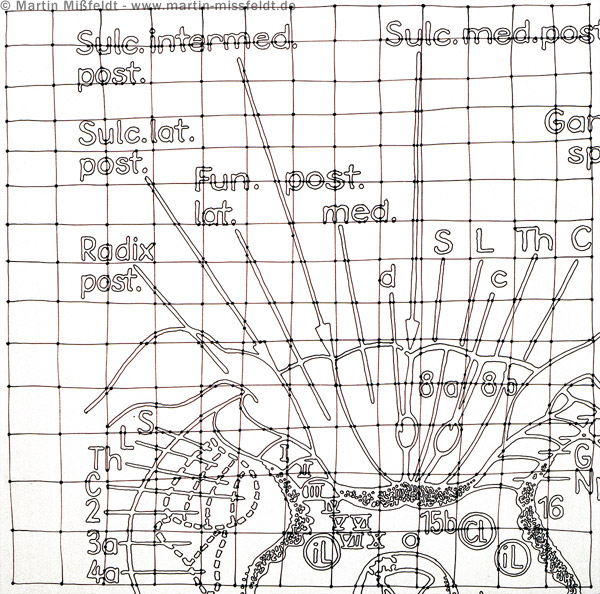 © Martin Mißfeldt - www.martin-missfeldt.de
Sulc. intermed. post.
Sulc. med. post
Sulc. lat. post.
Gan
sp
Fun. post.
lat. med.
Radix post.
S L Th C
d c
8a 8b
S
L
Th
C
2
3a
4a
I
II
III
IV
V VI
VII X
15b
16
CL
iL
iL
G
N